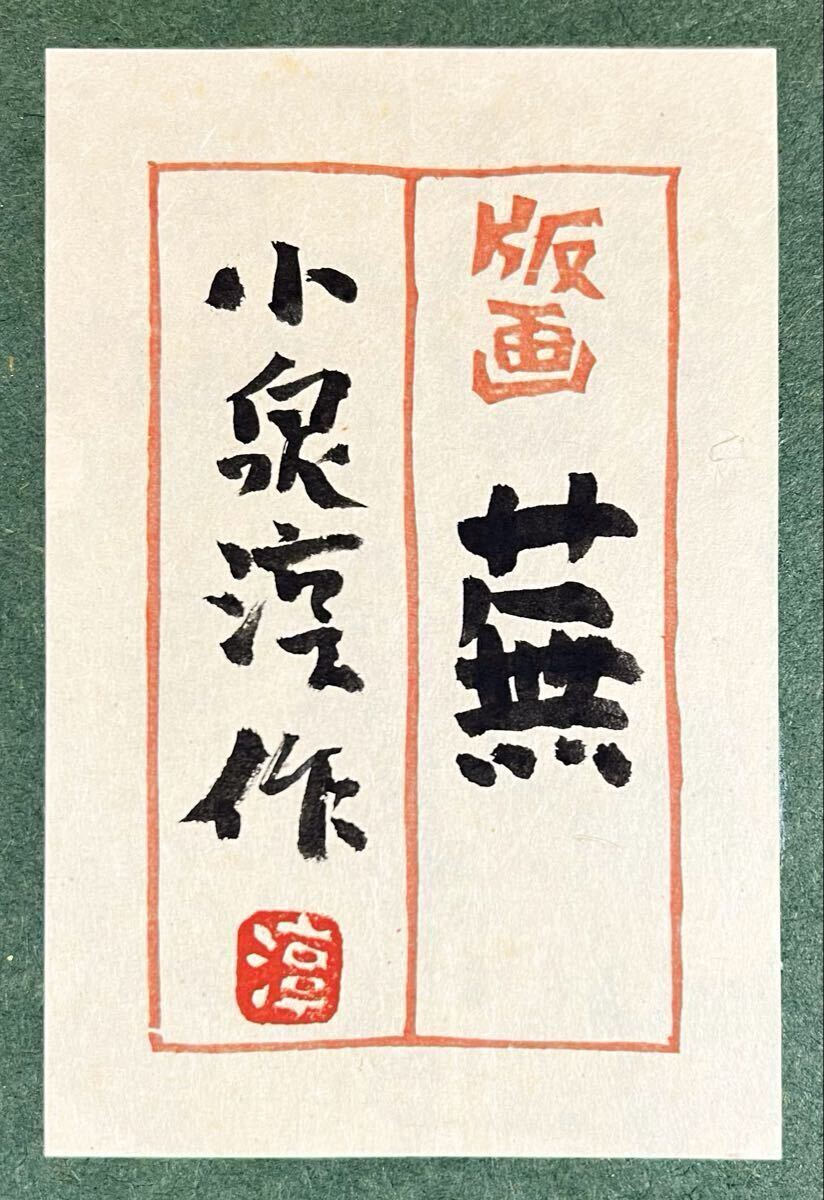 版画
蕪
小泉淳作
淳